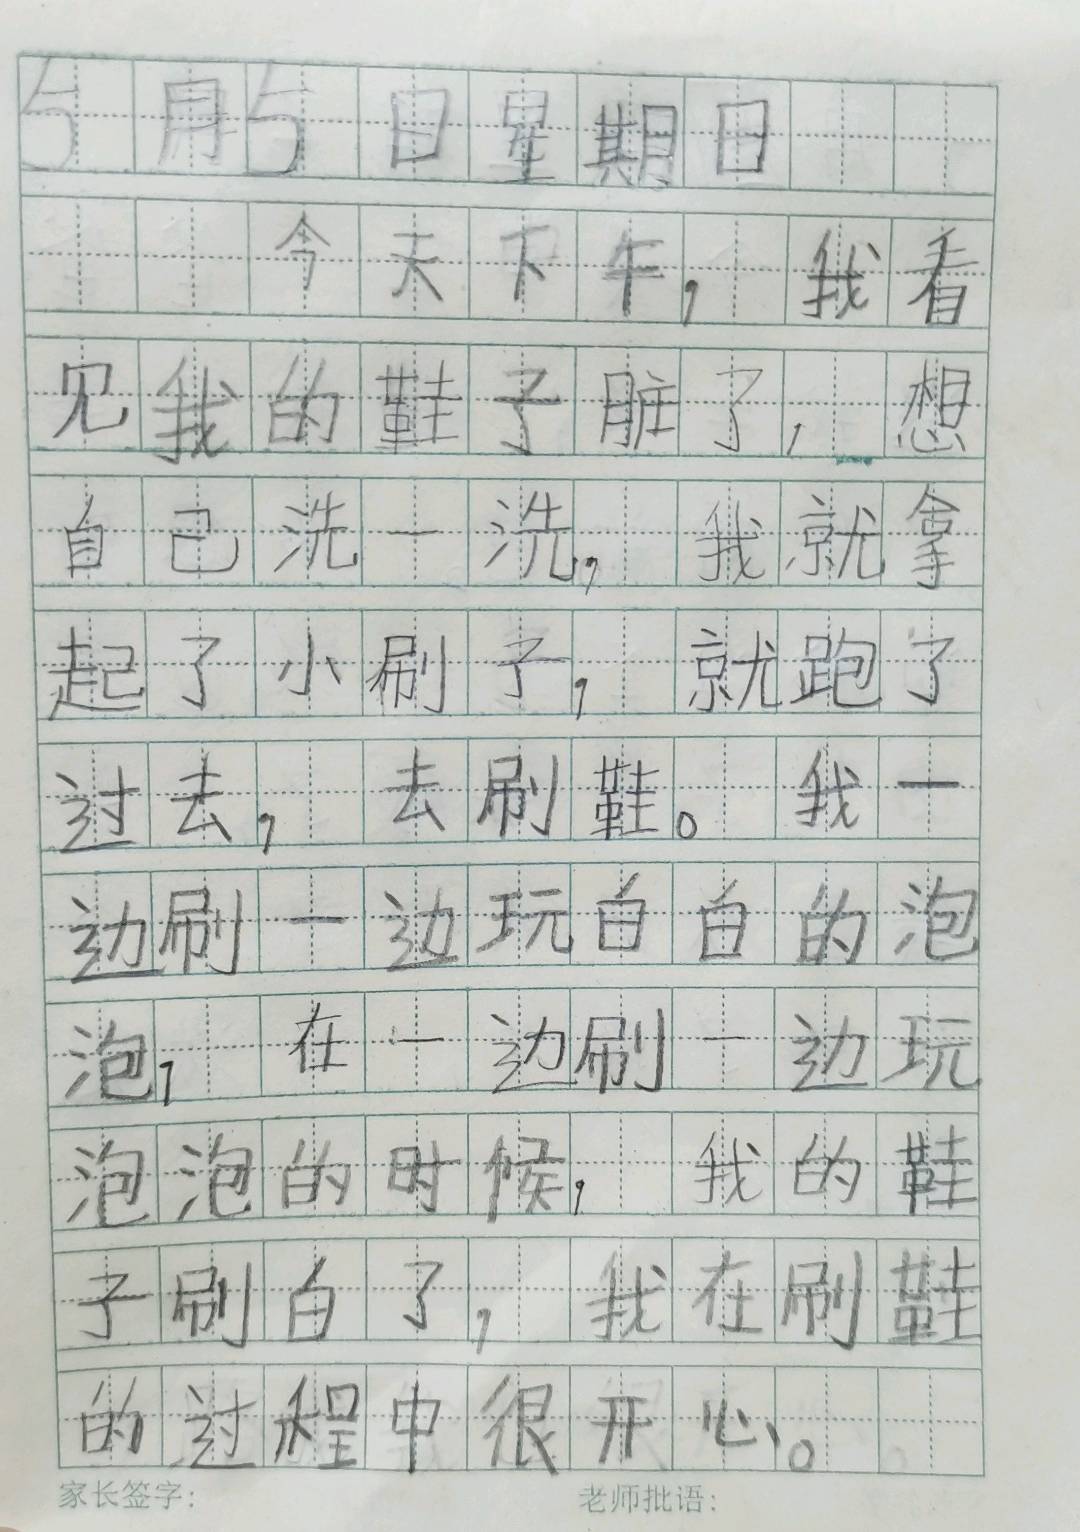 5月5日星期日
今天下午，我看
见我的鞋子脏了，想
自己洗一洗，我就拿
起了小刷子，就跑了
过去，去刷鞋。我一
边刷一边玩白白的泡
泡，在一边刷一边玩
泡泡的时候，我的鞋
子刷白了，我在刷鞋
的过程中很开心。
家长签字： 老师批语：